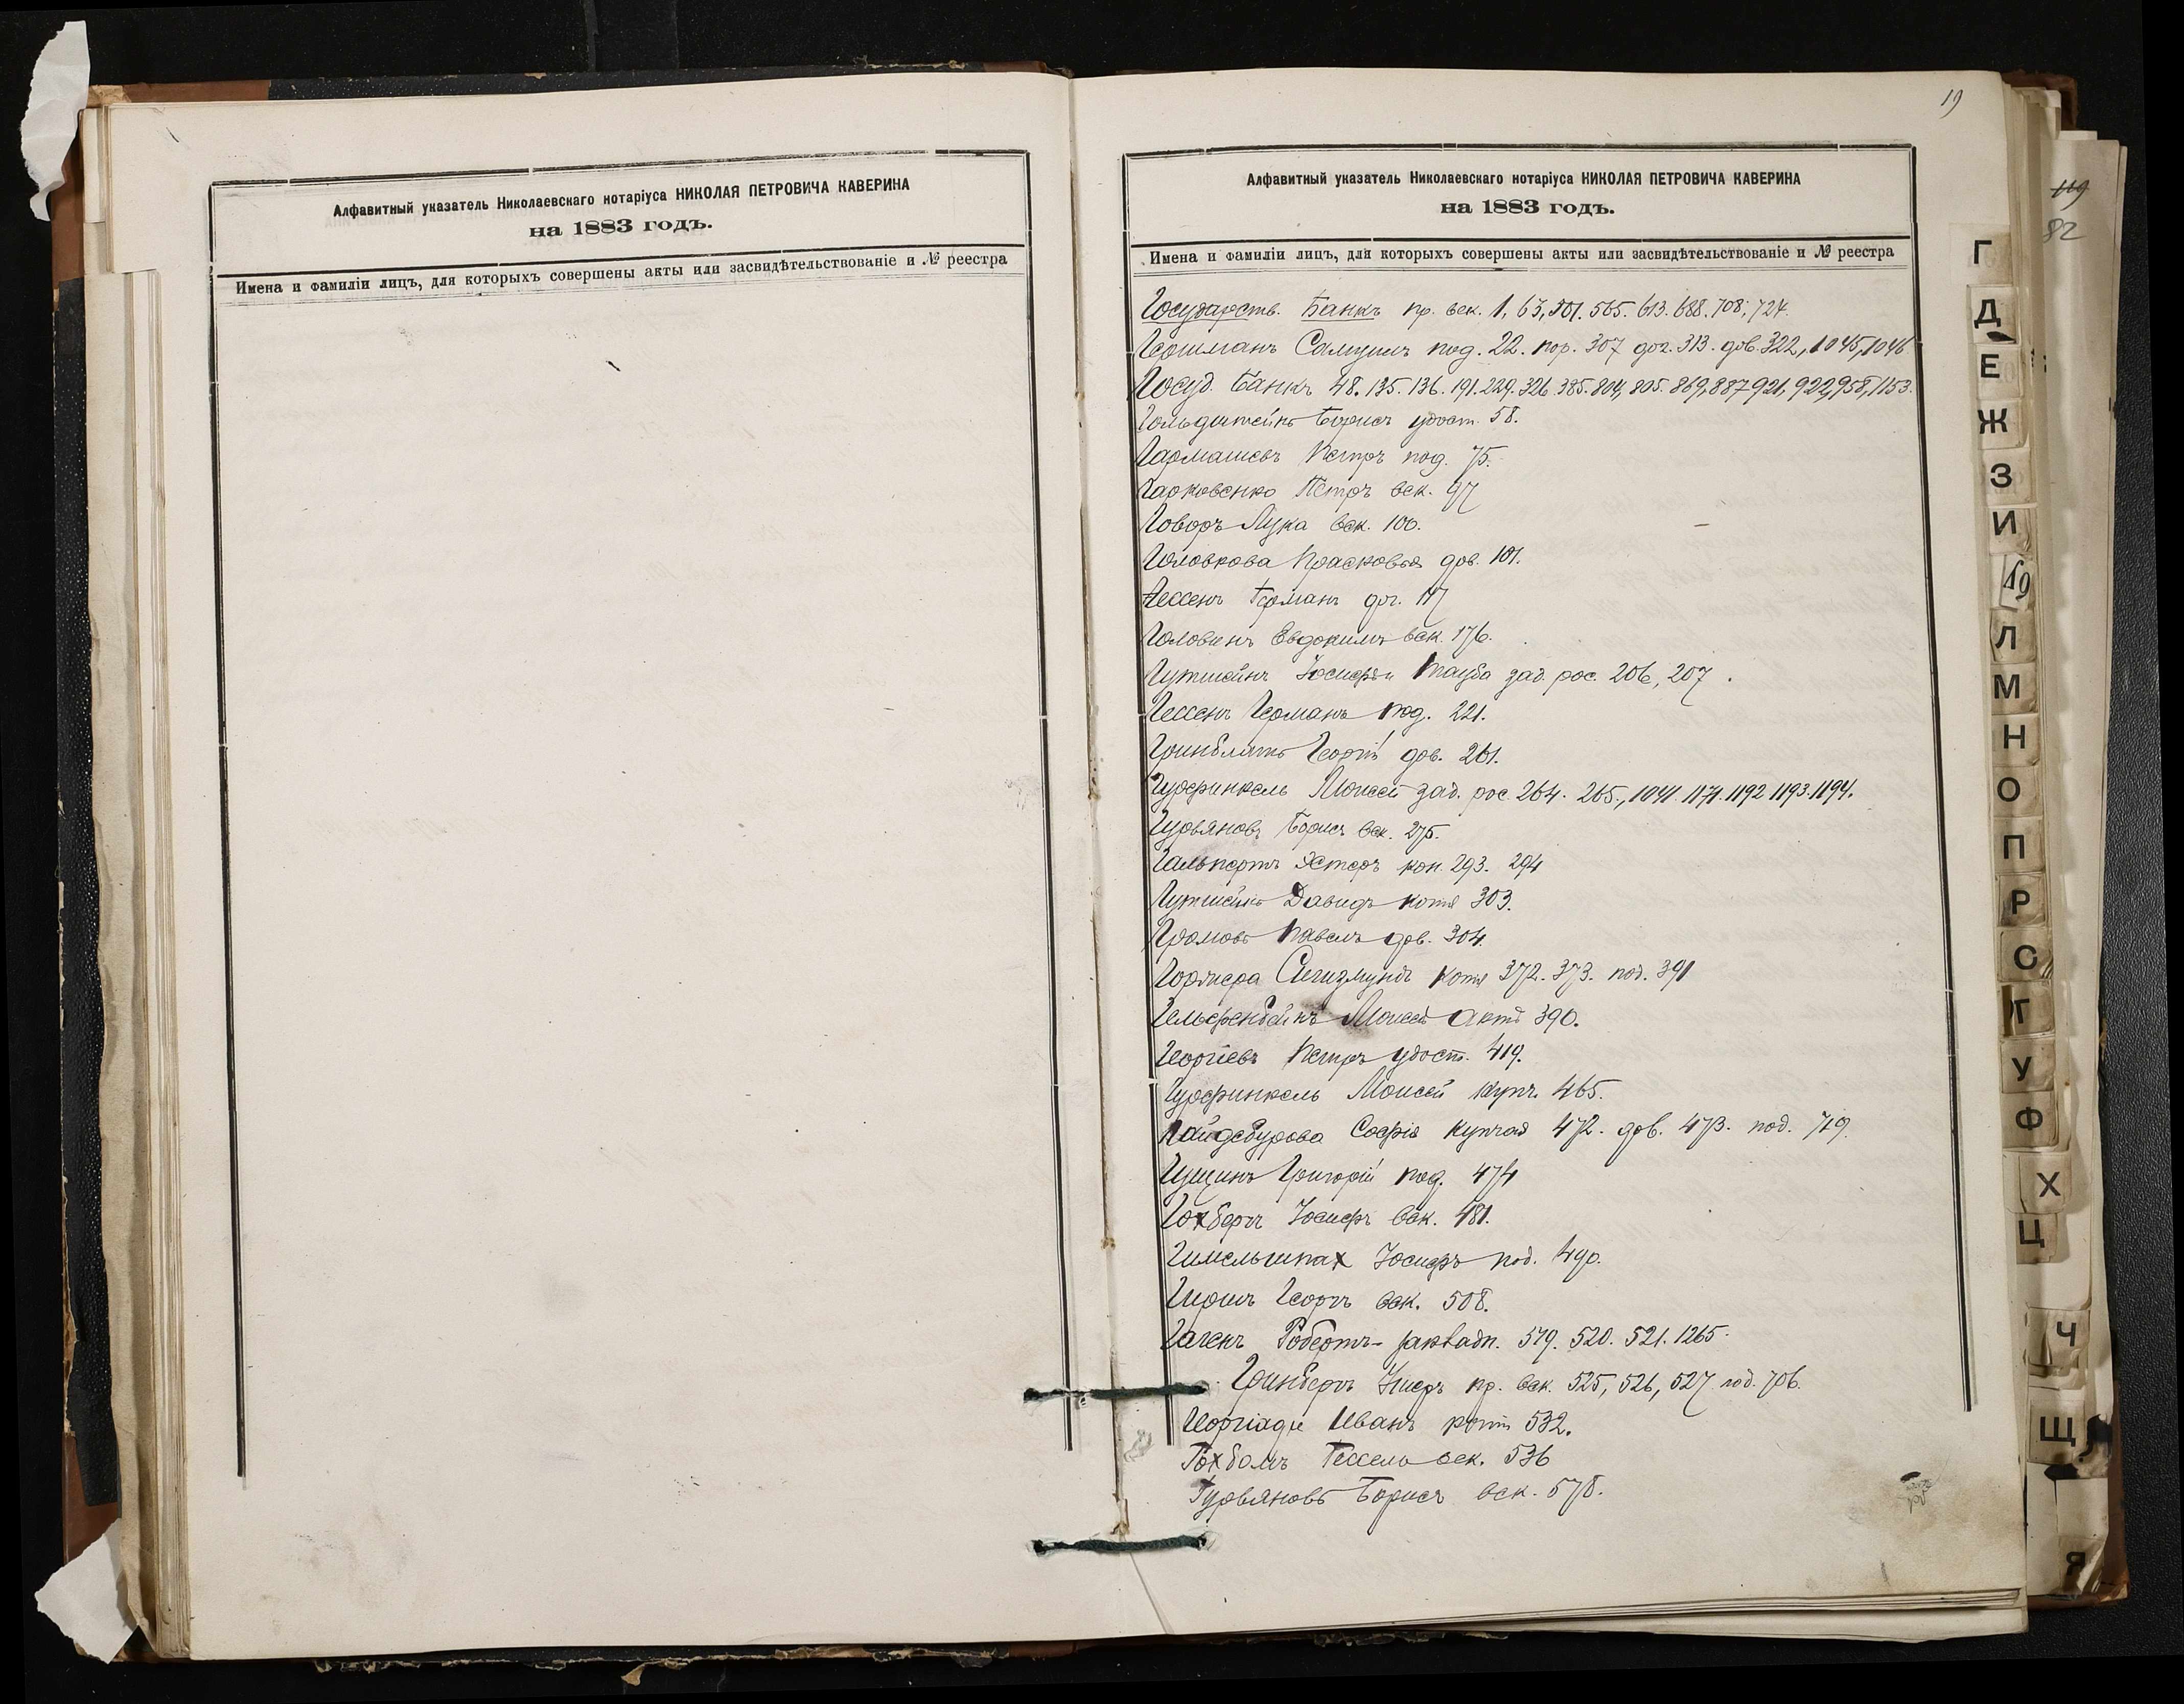 Алфавитный указатель Николаевскаго нотаріуса НИКОЛАЯ ПЕТРОВИЧА КАВЕРИНА
на 1883 годъ.
Имена и фамиліи лицъ, для которыхъ совершены акты или засвидѣтельствованіе и № реестра
19
Алфавитный указатель Николаевскаго нотаріуса НИКОЛАЯ ПЕТРОВИЧА КАВЕРИНА
на 1883 годъ.
Имена и фамиліи лицъ, для которыхъ совершены акты или засвидѣтельствованіе и № реестра
Государств. Банкъ пр. век. 1, 63, 501. 565. 613. 688. 708; 724.
Гершманъ Самуилъ под. 22. пор. 307 дог. 313. дов. 322, 1045, 1046
Госуд. Банкъ 48. 135. 136. 191. 229. 326. 385. 804, 805. 869, 887 921, 922, 958, 1153.
Гольдштейнъ Борисъ удост. 58.
Гармашевъ Петръ под. 75.
Гарковенко Петръ век. 97
Говоръ Лука век. 100.
Головкова Прасковья дов. 101.
Гессенъ Германъ дог. 117
Головинъ Евдокимъ век. 176.
Гутшейнъ Іосифъ и Тауба зад. рос. 206, 207.
Гессенъ Германъ под. 221.
Гринблатъ Георгій дов. 261.
Гурфинкель Моисей зад. рос. 264. 265., 1041. 1171. 1192 1193. 1194.
Гурьяновъ Борисъ век. 275.
Гальпертъ Эстеръ коп. 293. 294
Гутшейнъ Давидъ копія 303.
Громовъ Павелъ дов. 304.
Сигизмундъ копія 372. 373. под. 391
Гельфенбейнъ Моисей актъ 390.
Георгіевъ Петръ удост. 419.
Гурфинкель Моисей купч. 465.
Гайдебурова Софія купчая 472. дов. 473. под. 719.
Гущинъ Григорій под. 474
Гохбергъ Іосифъ век. 481.
Гимельшпах Іосифъ под. 490.
Гиршъ Георгъ век. 508.
Гагенъ Робертъ 519. 520. 521. 1265.
Гринбергъ пр. век. 525, 526, 527. под. 706.
Георгіади Иванъ копія 532.
Гохбамъ Гессель век. 536
Гурьяновъ Борисъ век. 578.
119
82
Г
Д
Е
Ж
З
И
Л
М
Н
О
П
Р
С
Т
У
Ф
Х
Ц
Ч
Щ
Я